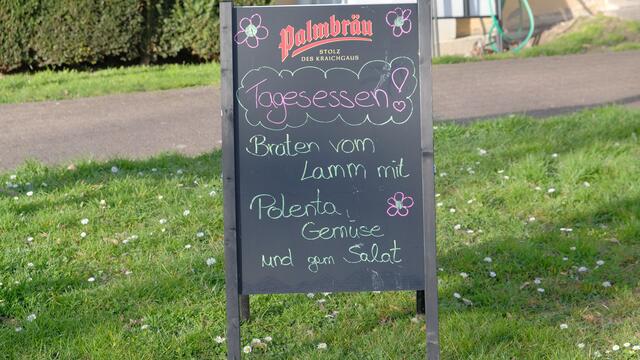 Palmbräu
STOLZ
DES KRAICHGAUS
Tagesessen!
Braten vom
Lamm mit
Polenta,
Gemüse
und gem Salat